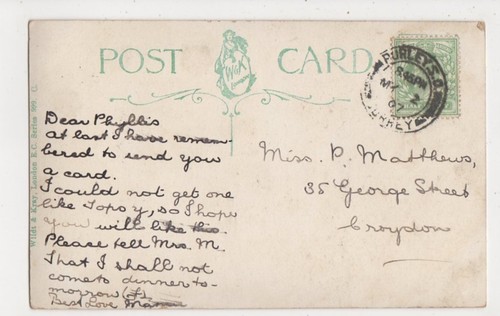 POST CARD
Wildt & Kray, London E.C. Series 999.
PURLEY S.O.
SURREY
Dear Phyllis
at last I have remem-
bered to send you
a card.
I could not get one
like Topsy, so I hope
you will like this.
Please tell Mrs. M.
That I shall not
come to dinner to-
morrow
Best Love
Miss. P. Matthews,
35 George Street
Croydon